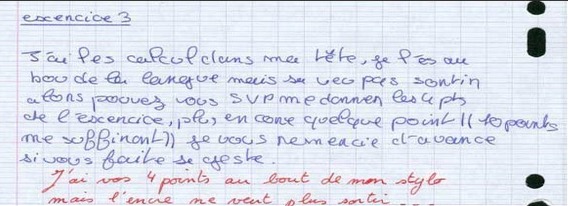 exercice 3
J'ai les calcul dans ma tête, je l'es au
bou de la langue mais sa veo pas sortir
alors pouvez vous SVP me donner les 4 pts
de l'exercice, plus, en core quelque point (( 10 points
me suffiront)) je vous remercie d'avance
si vous faite se geste.
J'ai vos 4 points au bout de mon stylo
mais l'encre ne veut plus sortir...